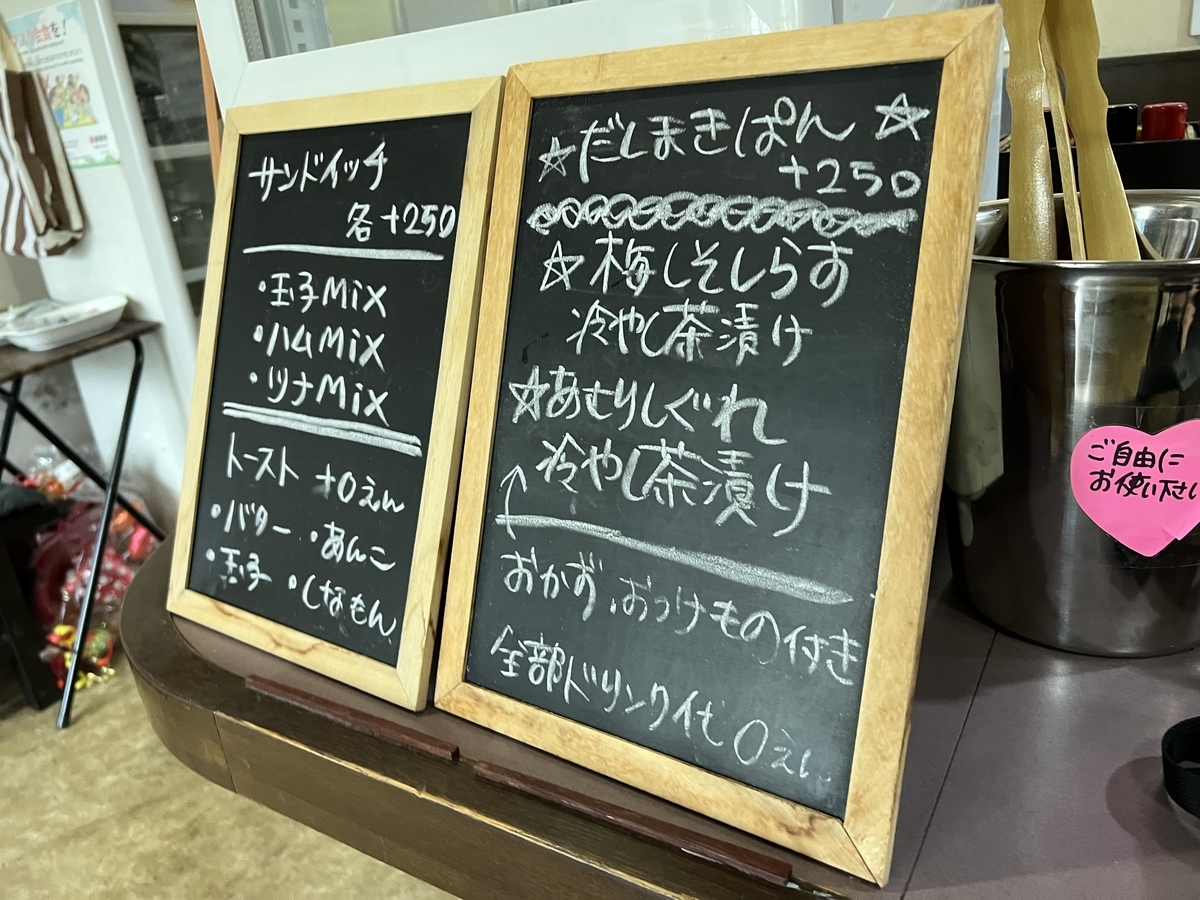 サンドイッチ
各+250
・玉子Mix
・ハムMix
・ツナMix
トースト +0えん
・バター ・あんこ
・玉子 ・しなもん
☆だしまきぱん☆
+250
☆梅しそしらす
冷やし茶漬け
☆あむりしぐれ
冷やし茶漬け
おかず、おつけもの付き
全部ドリンク代0えん
ご自由に
お使い下さい